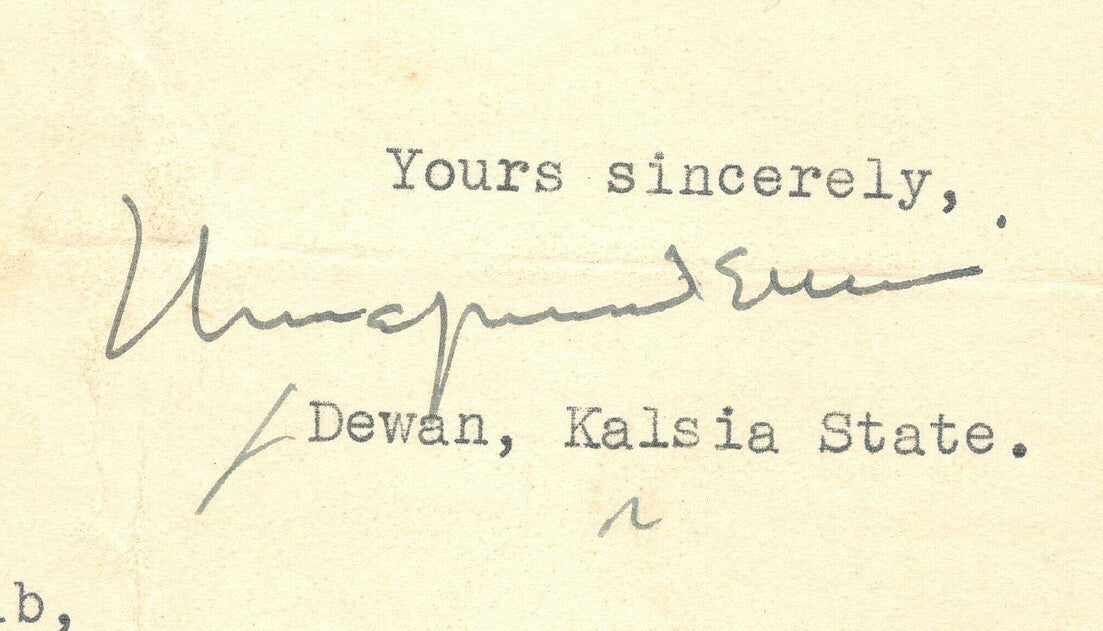 Yours sincerely,
Dewan, Kalsia State.
b,